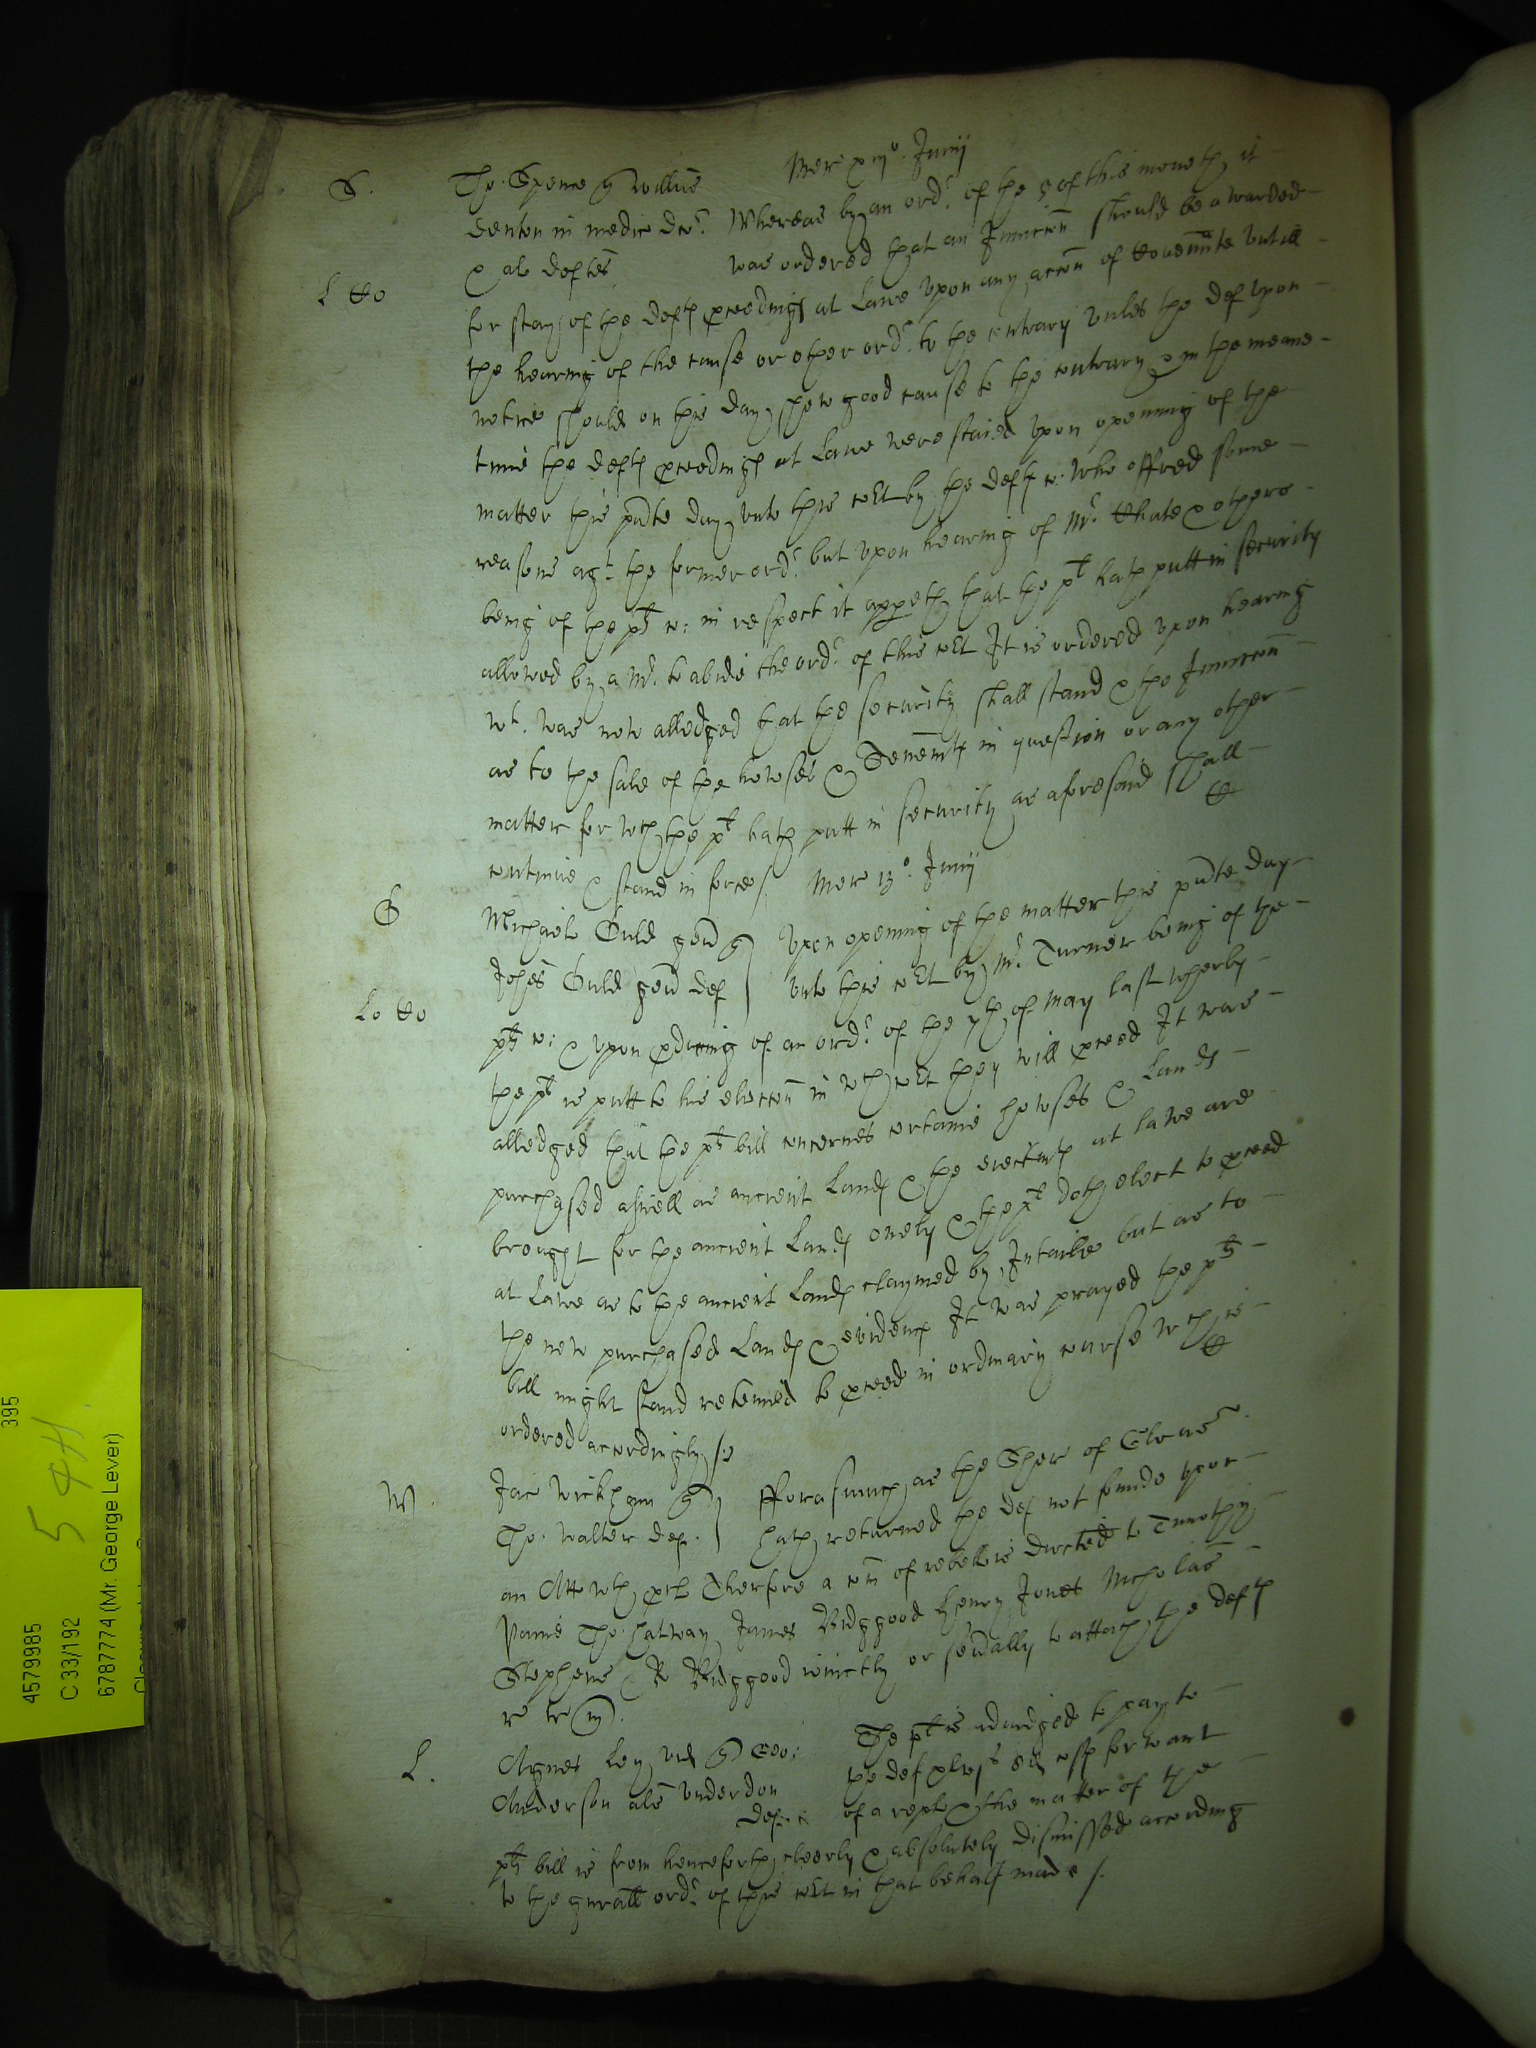 Mer xiijo. Junij
S. Tho. Spence q Willm̃
Denton in medic dcor. Whereas by an ordr. of the 5 of this moneth it
& al deftes was ordered that an Jniunccon should be awarded
for stay of the defts proceedings at Lawe upon any accon of Covennte untill
the hearing of the cause or other ordr. to the contrary unles the def upon
notice should on this day shew good cause to the contrary & in the meane
time the defts proceedings at Lawe were staied upon openning of the
matter this pnte day unto this cort by the defts co: who offred some
reasons agt. the former ordr. but upon hearing of Mr. & others
being of the pts co: in respect it appeth that the pt hath putt in security
allowed by a Mr. to abide the ordr. of this cort It is ordered upon hearing
wt. was now alledged that the security shall stand & the Jniunccon
as to the sale of the howses & Tenemts in question or any other
matter for wch the pt hath putt in security as aforesaid shall
continue & stand in force /. Mer 13o. Junij
G Michaell Guld gen q Upon opening of the matter this pnte day
Johes Guld gen def unto this cort by Mr. Turner being of the
pts co: & upon producing of an ordr. of the 7th of May last wherby
the pt is putt to his eleccon in wch cort they will proceed It was
alledged that the pts bill concernes certaine howses & Lands
purchased aswell as ancient Lands & the eiectmts at lawe are
brought for the ancient Lands onely & the pt doth elect to proceed
at Lawe as to the ancient Lands claymed by Intaile but as to
the new purchased Lands & evidencs It was prayed the pts
bill might stand reteined to proceed in ordinary course wch is
ordered accordingly /.
W. Jac Wickham q fforasmuch as the Sher of
Tho. Walter def. hath returned the def not founde upon
an Att wth procl Therfore a con of rebellio directed to Timothy
Paine Tho. Hatway James Bidggood Henry Jones Nicholas
Stephens & R Bidggood coniuctly or seually to attach the defts

L. Agnes Ley vid q Geo: The pt is adiudged to pay to
Anderson als Underdon the def costs for want
def. of a repl & the matter of the
pts bill is from henceforth cleerly & absolutely dismissed according
to the gnrall ordr. of this cort in that behalf made /.
395
5 4H
4579985
C 33/192
6787774 (Mr. George Lever)